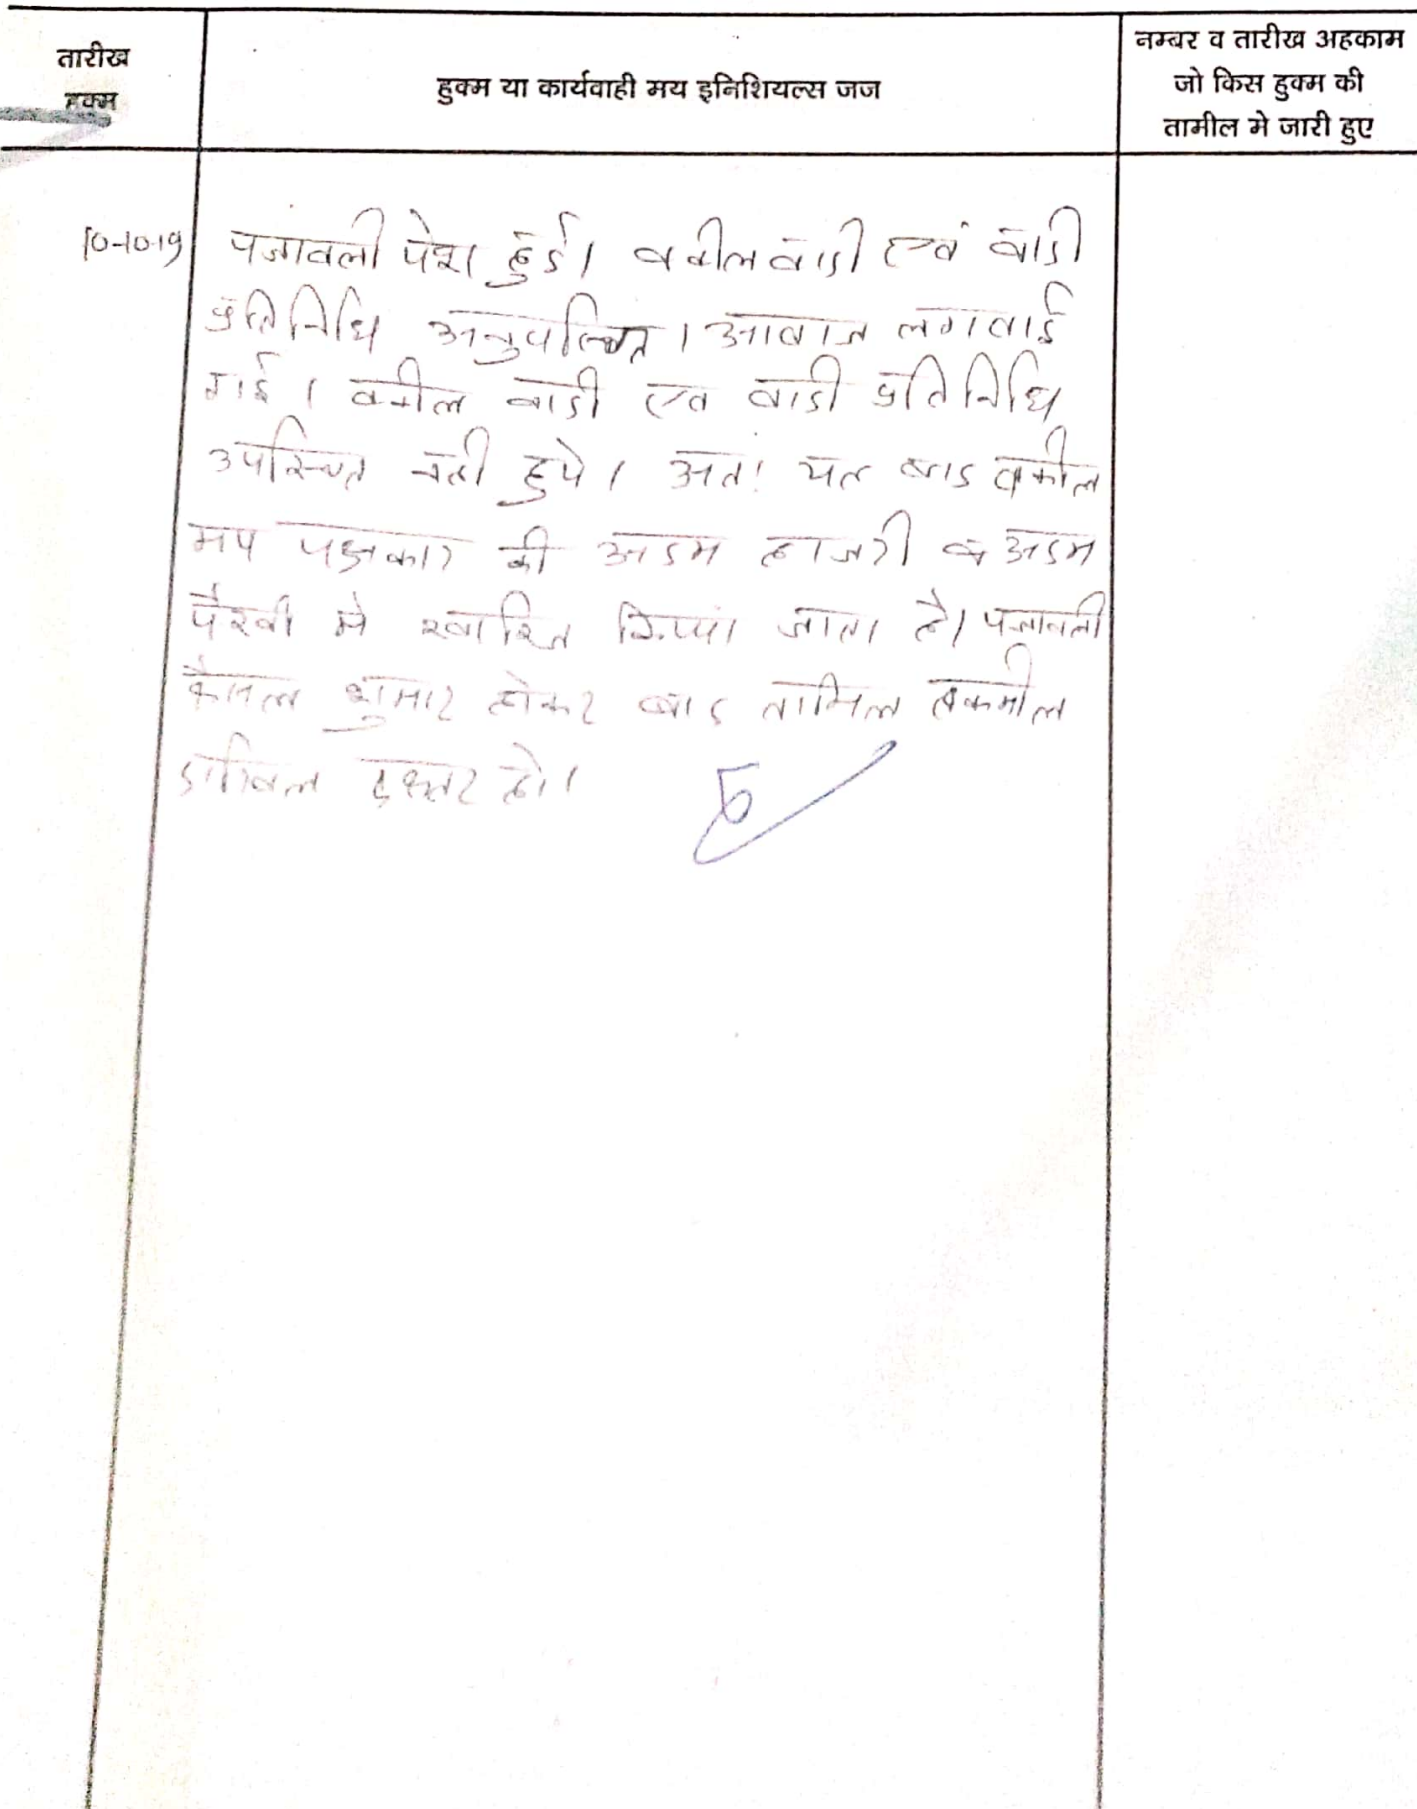 तारीख
हुक्म
हुक्म या कार्यवाही मय इनिशियल्स जज
नम्बर व तारीख अहकाम
जो किस हुक्म की
तामील मे जारी हुए
10-10-19
पत्रावली पेश हुई। वकील वादी एवं वादी
प्रतिनिधि अनुपस्थित। आवाज लगवाई
गई। वकील वादी एव वादी प्रतिनिधि
उपस्थित नही हुये। अतः यह वाद वकील
मय पक्षकार की अदम हाजरी व अदम
पैरवी मे खारिज किया जाता है। पत्रावली
फैसल शुमार होकर बाद तामिल तकमील
दाखिल दफ्तर हो।